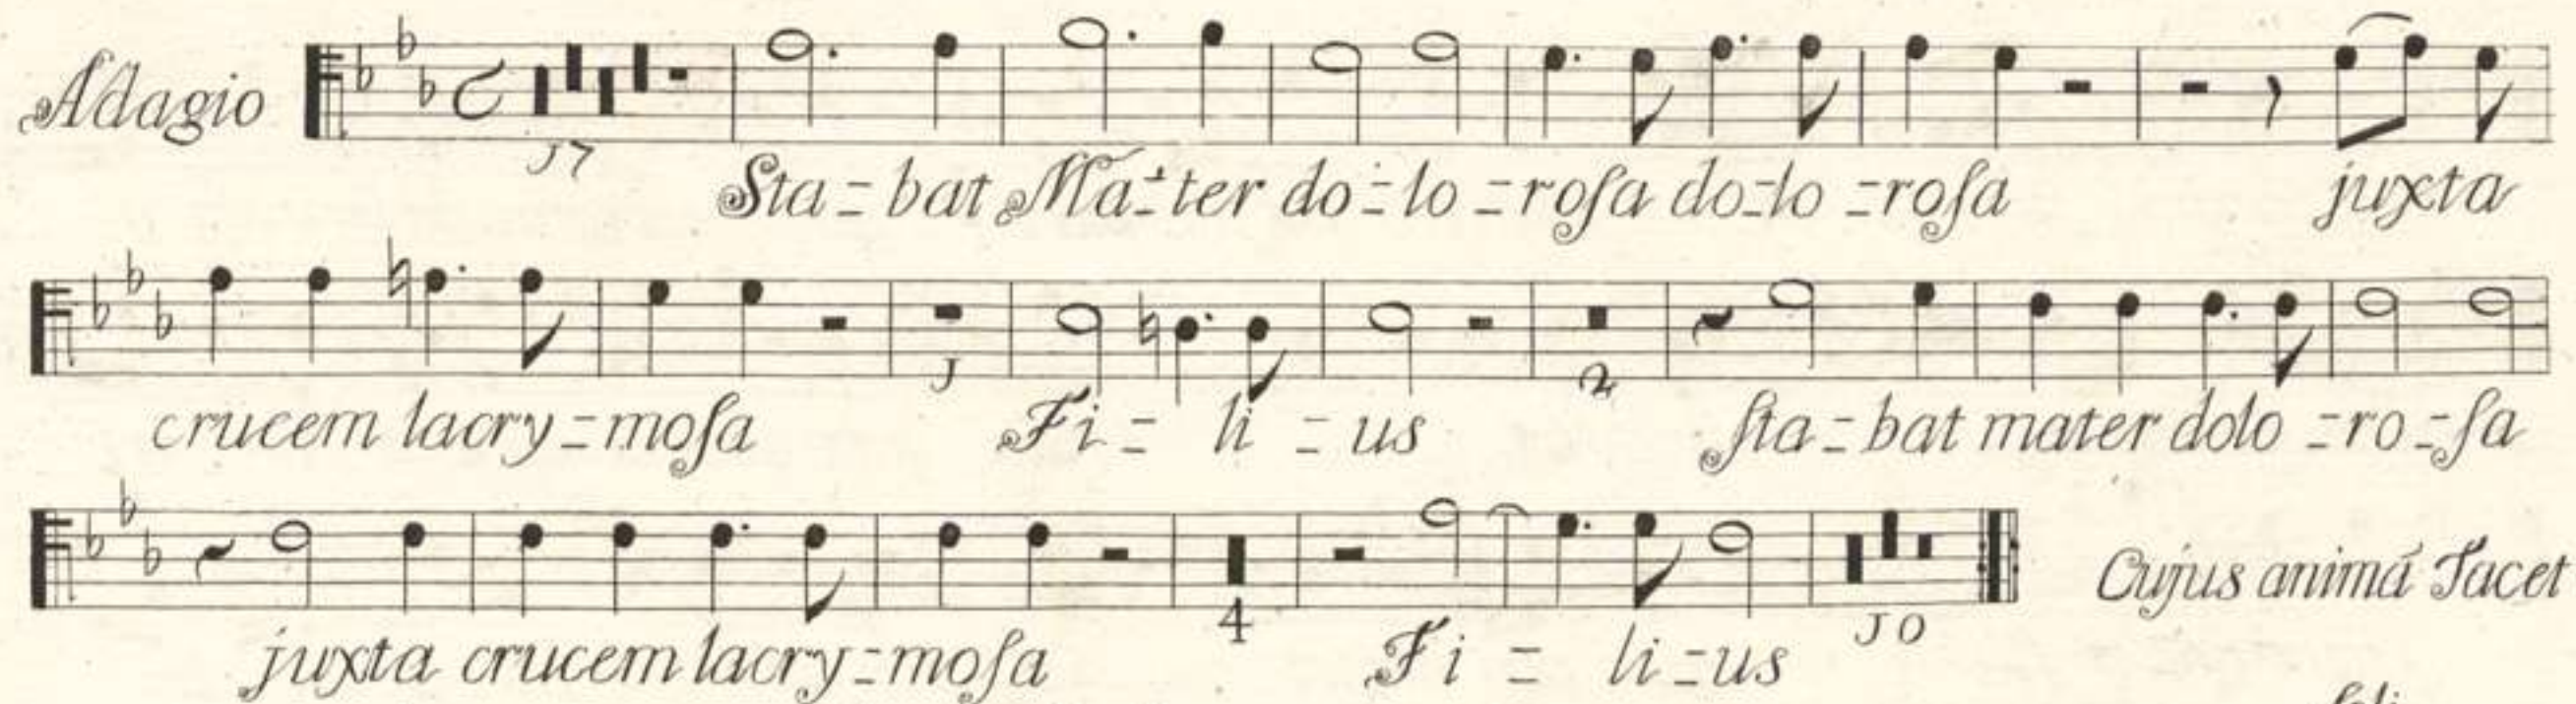 Adagio
J7
Sta - bat Ma - ter do - lo - roſa do - lo - roſa juxta
J 2
crucem lacry - moſa Fi - li - us ſta - bat mater dolo - ro - ſa
4 J0 Cujus animá Tacet
juxta crucem lacry - moſa Fi - li - us